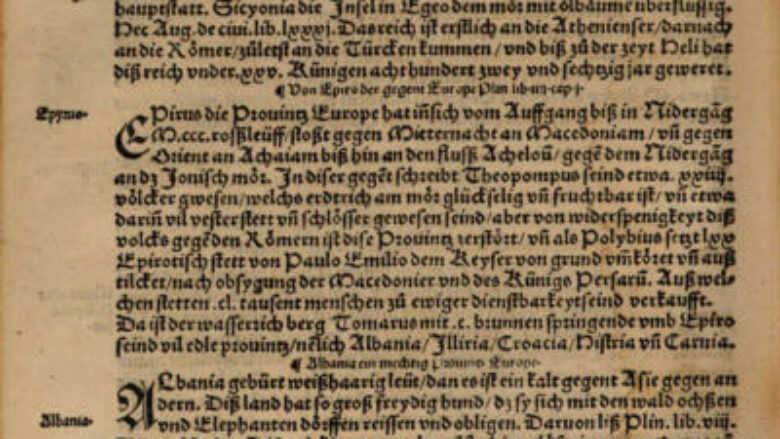 hauptstatt. Sicyonia die Insel in Egeo dem mör mit ölbäume überflüssig.
Hec Aug. de ciui. lib. lxxxj. Das reich ist erstlich an die Athenienser / darnach
an die Römer / zůletst an die Türcken kummen / vnd biß zů der zeyt Heli hat
diß reich vnder .xxv. Künigen acht hundert zwey vnd sechtzig jar geweret.
¶ Von Epiro der gegent Europe Plin lib iiij cap j.
Epyrus.
EPirus die Prouintz Europe hat in sich vom Auffgang biß in Nidergãg
M.ccc. rosßleüff / stoßt gegen Mitternacht an Macedoniam / vñ gegen
Orient an Achaiam biß hin an den flusß Acheloũ / gegẽ dem Nidergãg
an dz Jonisch mör. In diser gegẽt schreibt Theopompus seind etwa .xxiiij.
völcker gwesen / welchs erdtrich am mör glückselig vñ fruchtbar ist / vñ etwa
darin̄ vil vester stett vñ schlösser gewesen seind / aber von widerspenigkeyt diß
volcks gegẽ den Römern ist dise Prouintz zerstört / vñ als Polybius setzt lxx
Epirotisch stett von Paulo Emilio dem Keyser von grund vm̄köret vñ auß
tilcket / nach obsygung der Macedonier vnd des Künigs Persarũ. Auß wel-
chen stetten .cl. tausent menschen zů ewiger dienstbarkeyt seind verkaufft.
Da ist der wasserrich berg Tomarus mit .c. brunnen springende vmb Epiro
seind vil edle prouintz / nẽlich Albania / Illiria / Croacia / Histria vñ Carnia.
¶ Albania ein mechtig prouintz Europe.
ALbania gebürt weißhaarig leüt / dan es ist ein kalt gegent Asie gegen an
dern. Diß land hat so groß freydig hund / dz sy sich mit den wald ochßen
Albania.
vnd Elephanten dörffen reissen vnd obligen. Daruon liß Plin. lib. viij.